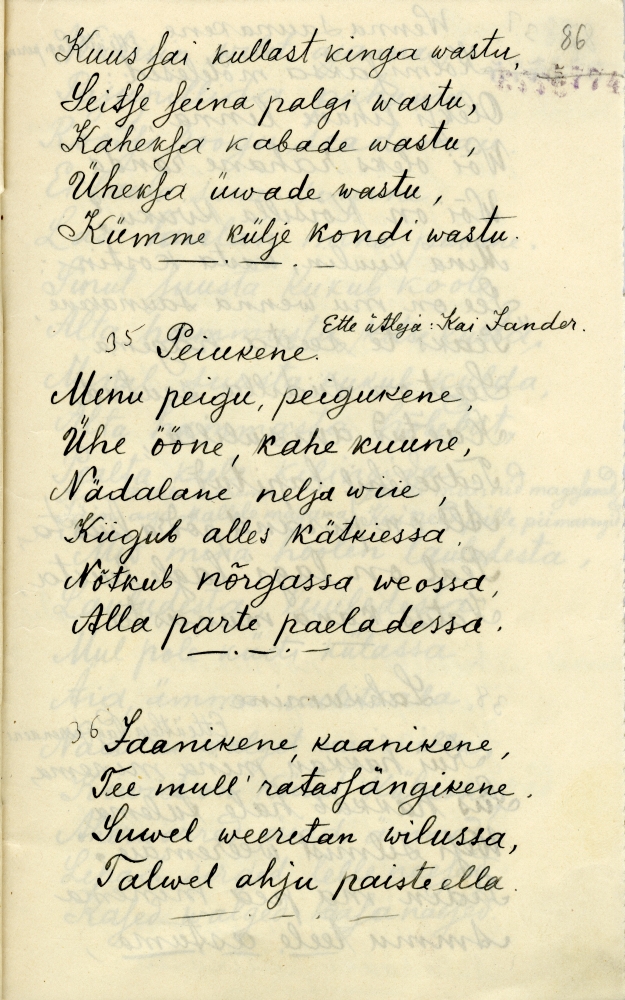 86
Kuus sai kullast kinga wastu,
Seitse seina palgi wastu,
Kaheksa kabade wastu,
Üheksa üwade wastu,
Kümme külje kondi wastu.
Ette ütleja: Kai Sander.
35 Peiukene.
Minu peigu, peigukene,
Ühe ööne, kahe kuune,
Nädalane nelja wiie,
Kiigub alles kätkiessa.
Nõtkub nõrgassa weossa,
Alla parte paeladessa.
36 Jaanikene, kaanikene,
Tee mull' ratassängikene.
Suwel weeretan wilussa,
Talwel ahju paisteella.